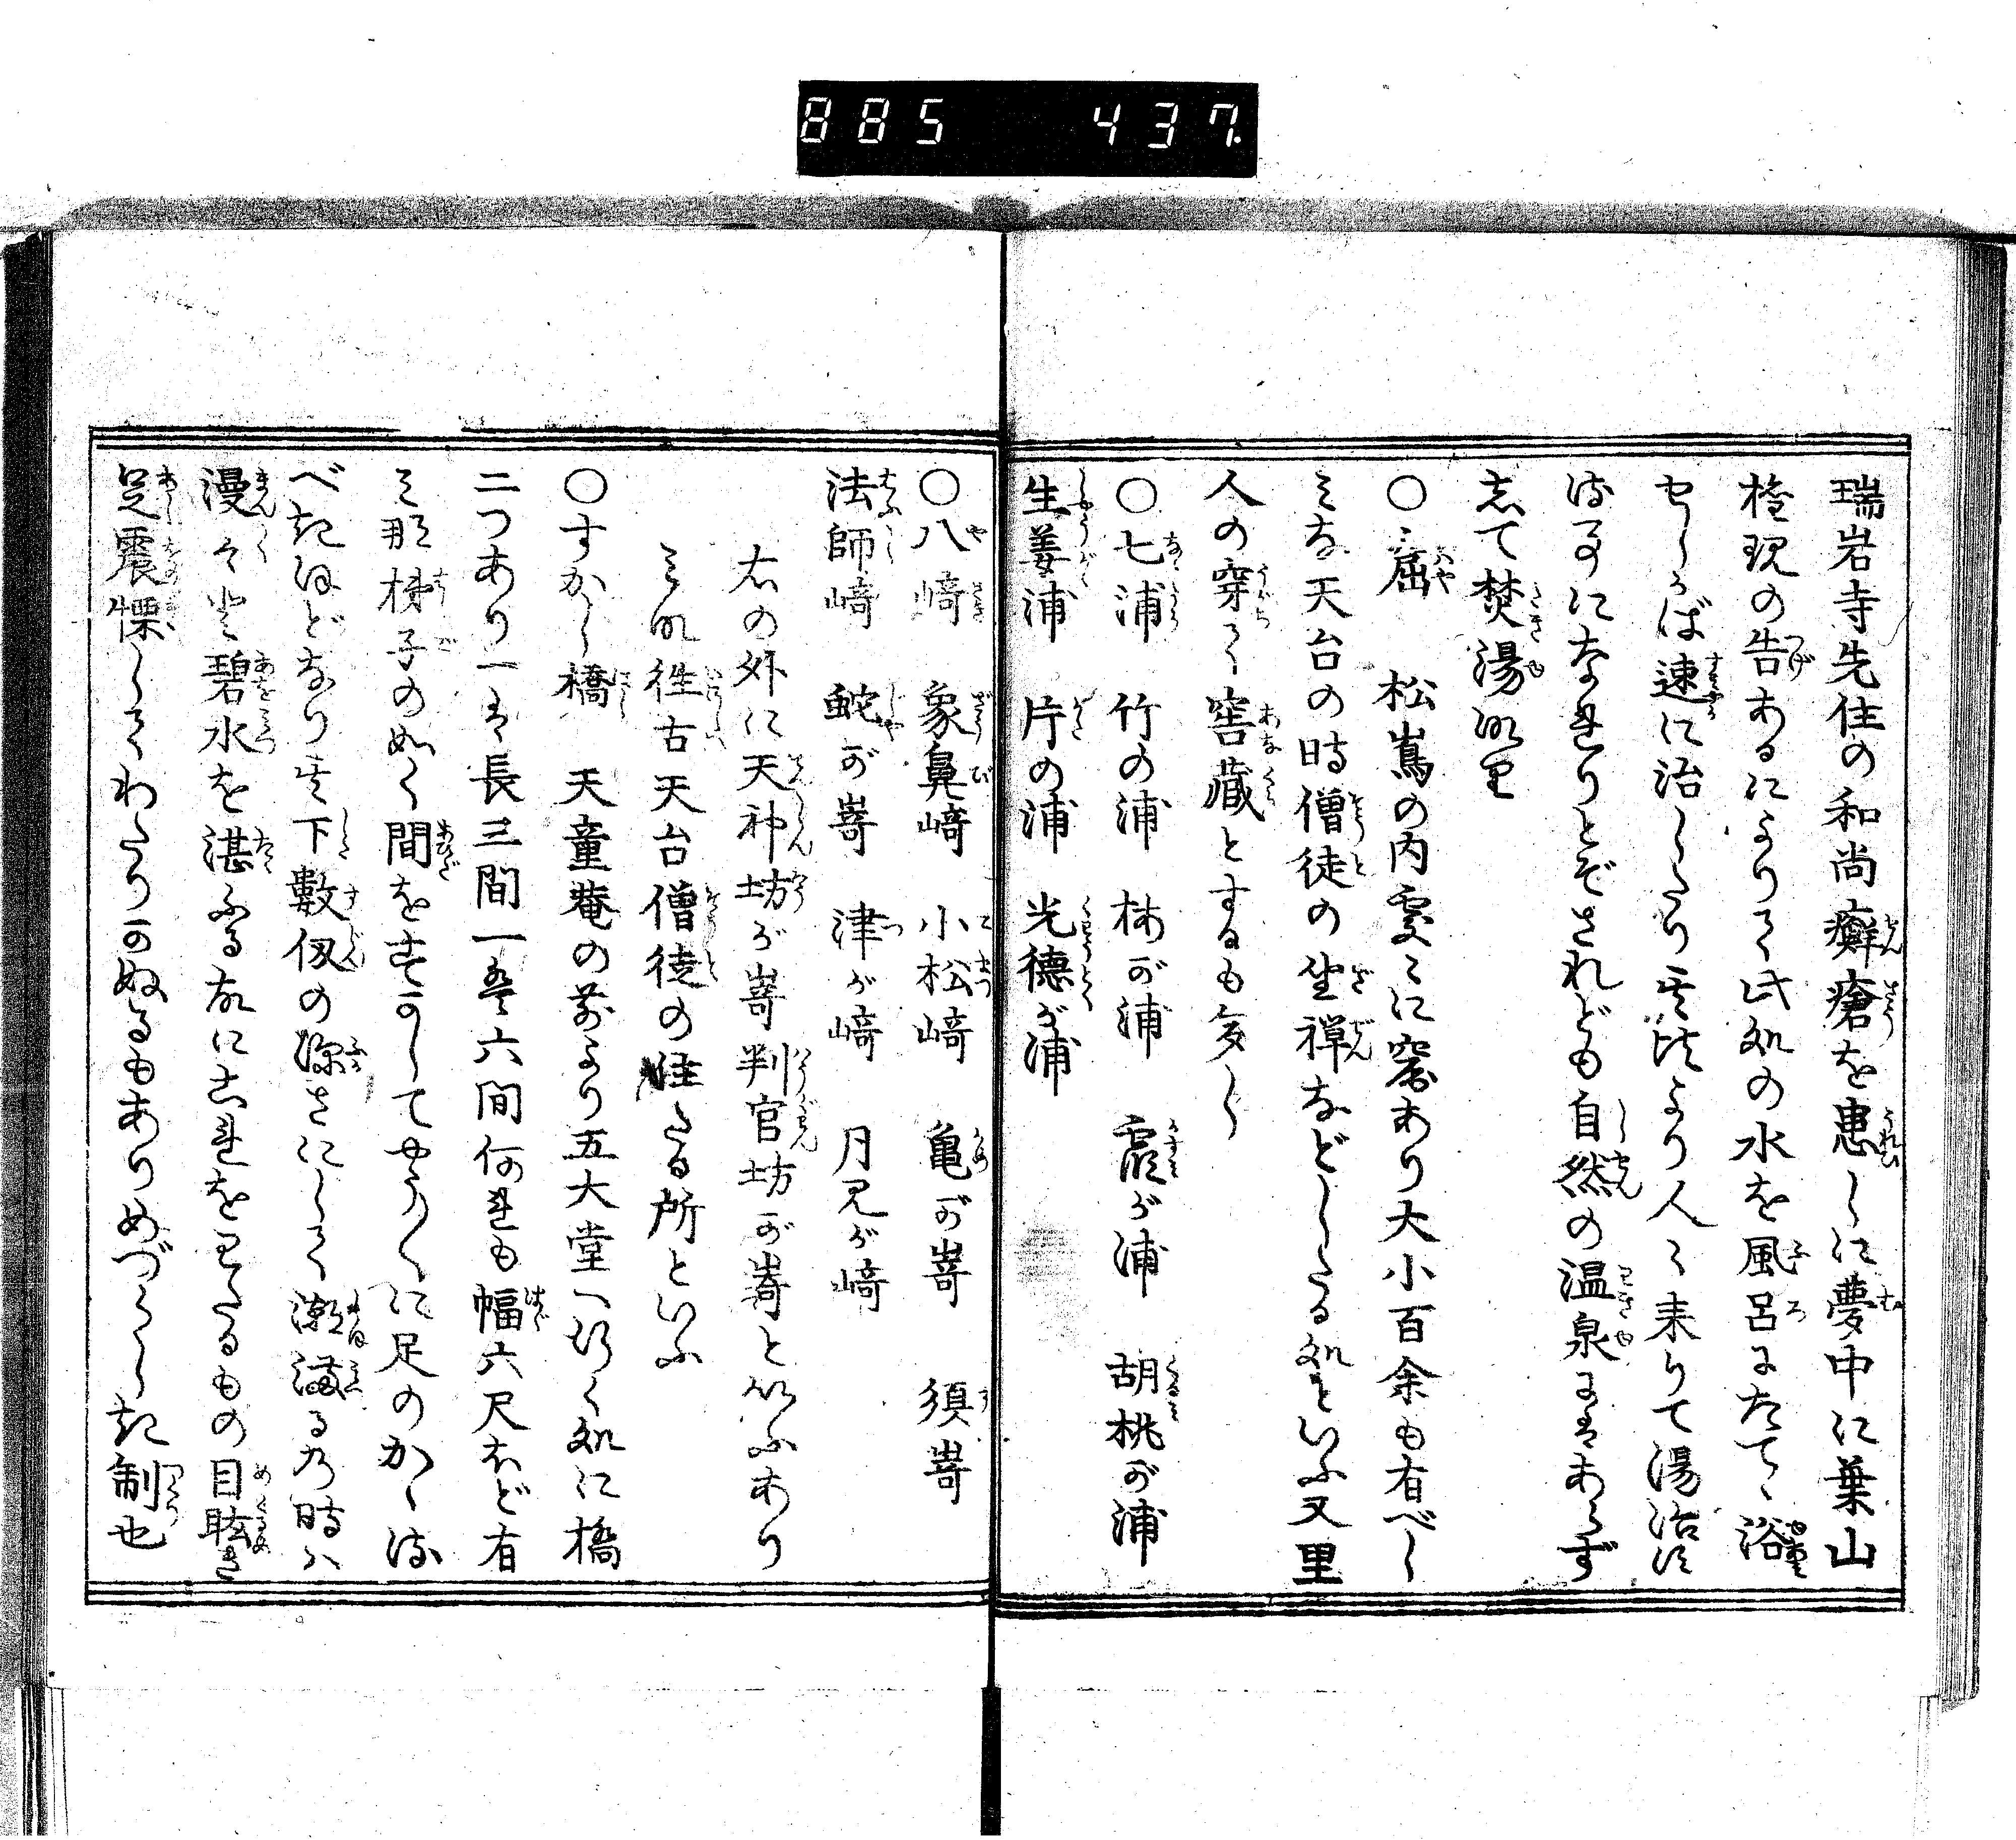 885 437
瑞岩寺先住の和尚癬瘡を患しに夢中に葉山
権現の告あるによりて此処の水を風呂にたてゝ浴
せしかば速に治したり其比より人々来りて湯治
する事になれりとぞされども自然の温泉にはあらず
して焚湯なり
〇屈 松嶌の内処々に窟あり大小百余も有べし
みな天台の時僧徒の坐禅などしたる処といふ又里
人の穿て窖蔵とするも多し
〇七浦 竹の浦 梅が浦 霞が浦 胡桃が浦
生姜浦 片の浦 光徳が浦
〇八﨑 象鼻﨑 小松﨑 亀が嵜 須嵜
法師﨑 蛇が嵜 津が﨑 月見が﨑
右の外に天神坊が嵜判官坊が嵜といふあり
みな往古天台僧徒の住たる所といふ
〇すかし橋 天童菴の前より五大堂へ行く処に橋
二つあり一は長三間一は六間何れも幅六尺ほど有
みな梯子の如く間をすかしてやう〱に足のかゝる
べきほどなり其下數仭の深さにして潮滿る乃時ハ
漫々と碧水を湛ふる故にこれをわたるもの目眩き
足震慄してわたりかぬるもありめづらしき制也